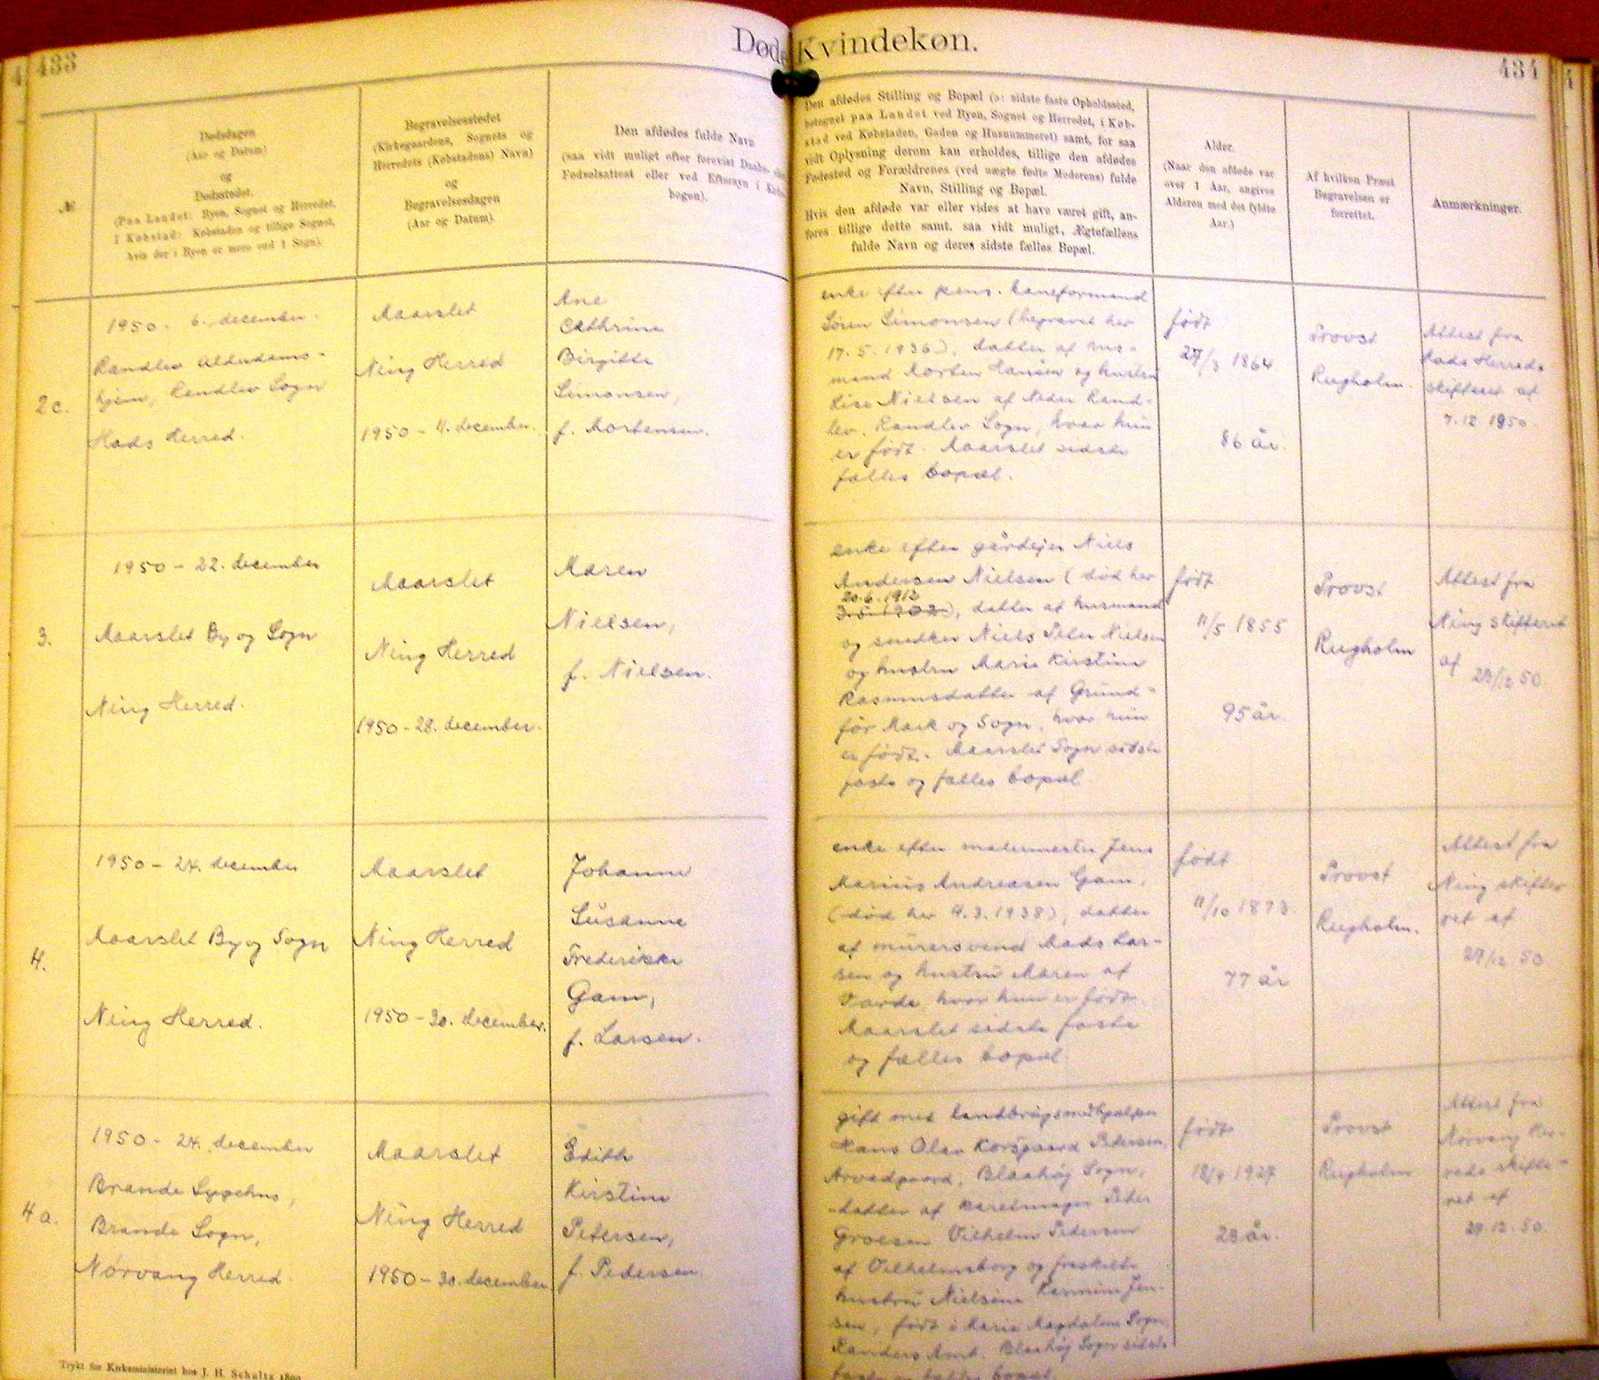 433
Døde Kvindekøn.
434
№
Dødsdagen
(Aar og Datum)
og
Dødsstedet.
(Paa Landet: Byen, Sognet og Herredet,
I Købstad: Købstaden og tillige Sognet,
hvis der i Byen er mere end 1 Sogn).
Begravelsesstedet
(Kirkegaardens, Sognets og
Herredets (Købstadens) Navn)
og
Begravelsesdagen
(Aar og Datum).
Den afdødes fulde Navn
(saa vidt muligt efter forevist Daabs- eller
Fødselsattest eller ved Eftersyn i Kirke-
bogen).
Den afdødes Stilling og Bopæl (ɔ: sidste faste Opholdssted,
betegnet paa Landet ved Byen, Sognet og Herredet, i Køb-
stad ved Købstaden, Gaden og Husnummeret) samt, for saa
vidt Oplysning derom kan erholdes, tillige den afdødes
Fødested og Forældrenes (ved uægte fødte Moderens) fulde
Navn, Stilling og Bopæl.
Hvis den afdøde var eller vides at have været gift, an-
føres tillige dette samt, saa vidt muligt, Ægtefællens
fulde Navn og deres sidste fælles Bopæl.
Alder.
(Naar den afdøde var
over 1 Aar, angives
Alderen med det fyldte
Aar.)
Af hvilken Præst
Begravelsen er
forrettet.
Anmærkninger.
2c.
1950 - 6. december.
Randlev Alderdoms-
hjem, Randlev Sogn
Hads Herred.
Maarslet
Ning Herred
1950 - 11. december.
Ane
Cathrine
Birgitte
Simonsen,
f. Mortensen.
enke efter pens. baneformand
Søren Simonsen (begravet her
17.5.1936), datter af hus-
mand Morten Hansen og hustru
Lise Nielsen af Neder Rand-
lev, Randlev Sogn, hvor hun
er født. Maarslet sidste
fælles bopæl.
født
27/3 1864
86 år.
Provst
Rugholm.
Attest fra
Hads Herreds
skifteret af
7.12 1950.
3.
1950 - 22. december
Maarslet By og Sogn
Ning Herred.
Maarslet
Ning Herred
1950 - 28. december.
Maren
Nielsen,
f. Nielsen.
enke efter gårdejer Niels
Andersen Nielsen (død her
20.6.1912
), datter af husmand
og snedker Niels Peter Nielsen
og hustru Marie Kirstine
Rasmusdatter af Grund-
før Mark og Sogn, hvor hun
er født. Maarslet Sogn sidste
faste og fælles bopæl.
født
11/5 1855
95 år.
Provst
Rugholm
Attest fra
Ning skifteret
af
/12 50.
4.
1950 - 24. december
Maarslet By og Sogn
Ning Herred.
Maarslet
Ning Herred
1950 - 30. december.
Johanne
Susanne
Frederikke
Gam,
f. Larsen.
enke efter malermester Jens
Marius Andreasen Gam,
(død her 9.3.1938), datter
af murersvend Mads Lar-
sen og hustru Maren af
Varde, hvor hun er født.
Maarslet sidste faste
og fælles bopæl.
født
11/10 1873
77 år
Provst
Rugholm.
Attest fra
Ning skifte-
ret af
/12 50
4a.
1950 - 24. december
Brande Sygehus,
Brande Sogn,
Nørvang Herred.
Maarslet
Ning Herred
1950 - 30. december
Edith
Kirstine
Petersen,
f. Pedersen.
gift med landbrugsmedhjælper
Hans Olav Korsgaard Petersen,
Arvadgaard, Blaahøj Sogn,
datter af karetmager Peter
Vilhelm Pedersen
af Vilhelmsborg og fraskilte
hustru Nielsine Jen-
sen, født i Marie Magdalene Sogn,
Randers Amt. Blaahøj Sogn sidste
faste og fælles bopæl.
født
1927
23 år.
Provst
Rugholm
Attest fra
Nørvang Her-
reds skifte-
ret af
12.50.
Trykt for Kirkeministeriet hos J. H. Schultz